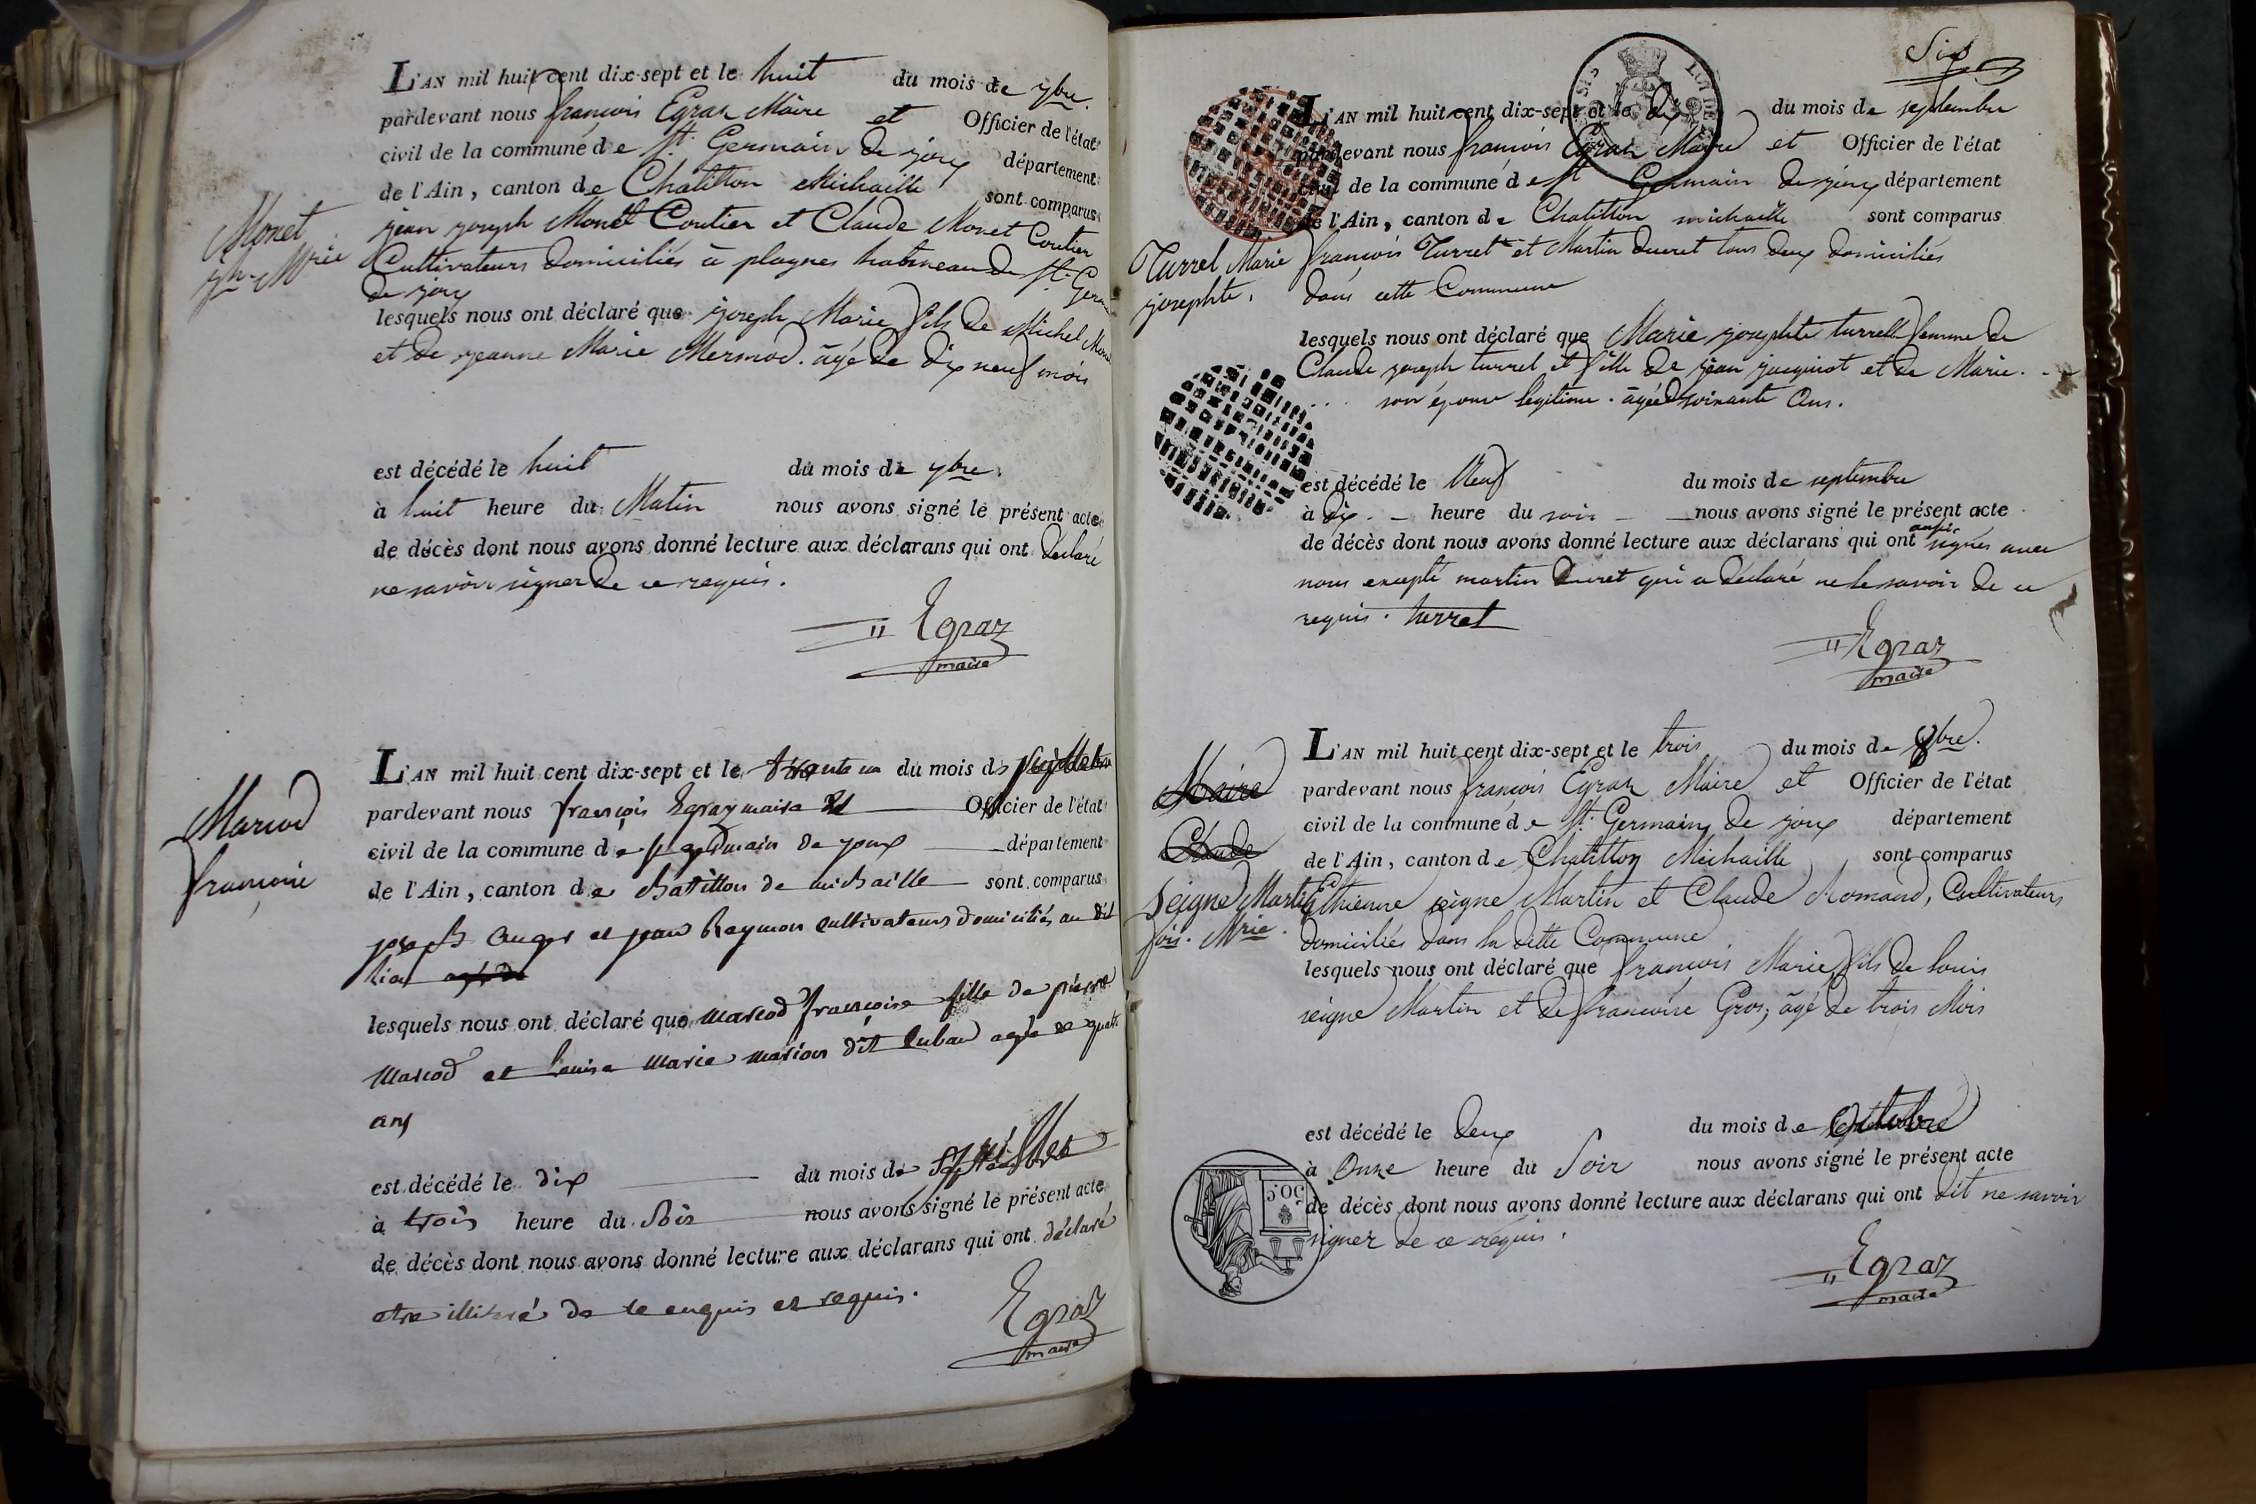 L'AN mil huit cent dix-sept et le huit du mois de 7bre.
pardevant nous françois Egraz Maire et Officier de l'état
civil de la commune de St. Germain de joux département
de l'Ain, canton de Chatillon Michaille sont comparus
Monet
jph. Mrie
jean joseph Monet Coutier et Claude Monet Coutier
Cultivateurs domiciliés à plagnes hameau de St. Germ
de joux
lesquels nous ont déclaré que joseph Marie fils de Michel Monet
et de jeanne Marie Mermod. âgé de dix neuf mois
est décédé le huit du mois de 7bre.
à huit heure du Matin nous avons signé le présent acte
de décès dont nous avons donné lecture aux déclarans qui ont déclaré
ne savoir signer de ce requis.
Egraz
maire
L'AN mil huit cent dix-sept et le trente un du mois de
pardevant nous françois Egraz maire et Officier de l'état
civil de la commune de st germain de joux département
de l'Ain, canton de chatillon de michaille sont comparus
Marcod
françoise
joseph et jean Raymon cultivateurs domiciliés au dit
lieu
lesquels nous ont déclaré que marcod françoise fille de pierre
marcod et Louise marie marion dit agée de quatre
ans
est décédé le dix du mois de
à trois heure du Soir nous avons signé le présent acte
de décès dont nous avons donné lecture aux déclarans qui ont déclaré
etre illiteré de le enquis et requis.
Egraz
maire
Six
L'AN mil huit cent dix-sept et le dix du mois de septembre
pardevant nous françois Egraz Maire et Officier de l'état
civil de la commune de St Germain de joux département
de l'Ain, canton de Chatillon michaille sont comparus
Turrel Marie
josephte.
françois Turret et Martin ducret tous deux domiciliés
dans cette Commune
lesquels nous ont déclaré que Marie josephte turrel femme de
Claude joseph turrel et fille de jean jacquinot et de Marie. . .
. . . son épouse légitime. âgée soixante Ans.
est décédé le Neuf du mois de septembre
à dix heure du soir nous avons signé le présent acte
de décès dont nous avons donné lecture aux déclarans qui ont aussi signés avec
nous excepté martin ducret qui a déclaré ne le savoir de ce
requis. turret
Egraz
maire
L'AN mil huit cent dix-sept et le trois du mois de 8bre.
pardevant nous françois Egraz Maire et Officier de l'état
civil de la commune de St. Germain de joux département
de l'Ain, canton de Chatillon Michaille sont comparus
Maire
Claude
Seigne Martin
fois. Mrie.
Ethienne seigne Martin et Claude Romand, Cultivateurs
domiciliés dans la ditte Commune
lesquels nous ont déclaré que françois Marie fils de louis
seigne Martin et de françoise Gros, âgé de trois Mois
est décédé le deux du mois de Octobre
à Onze heure du Soir nous avons signé le présent acte
de décès dont nous avons donné lecture aux déclarans qui ont dit ne savoir
signer de ce requis.
50C.
Egraz
maire